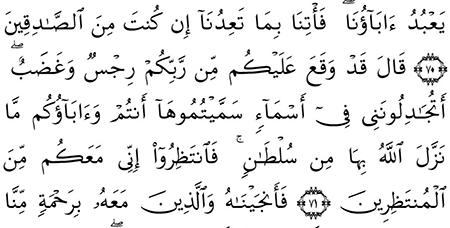 يَعْبُدُ ءَابَآؤُنَا ۖ فَأْتِنَا بِمَا تَعِدُنَآ إِن كُنتَ مِنَ ٱلصَّـٰدِقِينَ
﴿٧٠﴾ قَالَ قَدْ وَقَعَ عَلَيْكُم مِّن رَّبِّكُمْ رِجْسٌ وَغَضَبٌ ۖ
أَتُجَـٰدِلُونَنِى فِىٓ أَسْمَآءٍ سَمَّيْتُمُوهَآ أَنتُمْ وَءَابَآؤُكُم مَّا
نَزَّلَ ٱللَّهُ بِهَا مِن سُلْطَـٰنٍ ۚ فَٱنتَظِرُوٓا۟ إِنِّى مَعَكُم مِّنَ
ٱلْمُنتَظِرِينَ ﴿٧١﴾ فَأَنجَيْنَـٰهُ وَٱلَّذِينَ مَعَهُۥ بِرَحْمَةٍ مِّنَّا